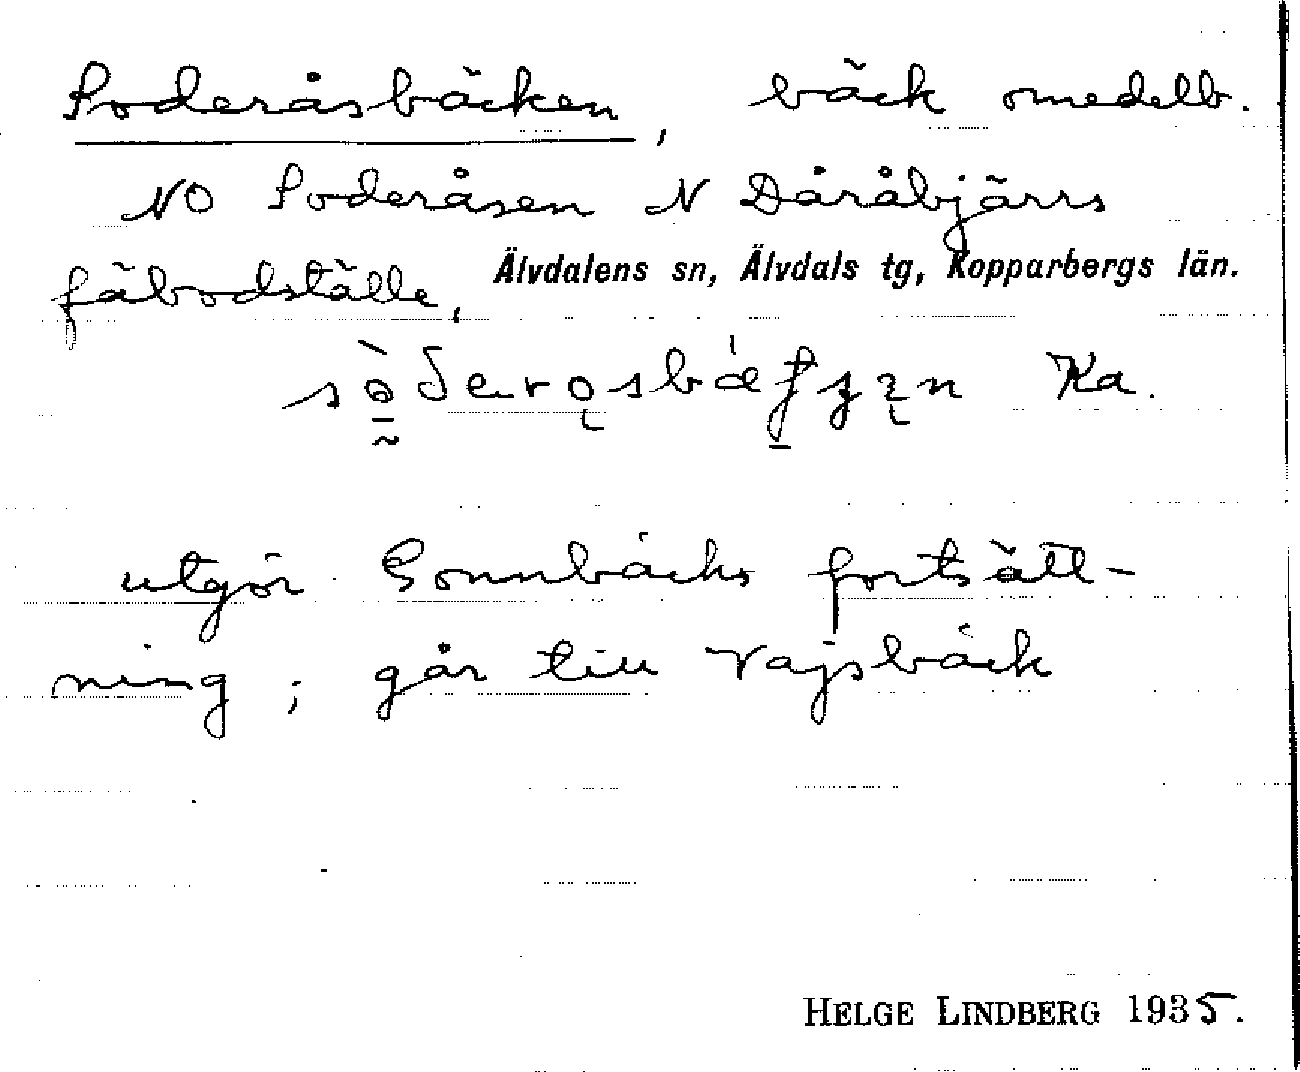 Soderåsbäcken, bäck omedelb.
NO Soderåsen N Dåråbjärrs
fäbodställe, Älvdalens sn, Älvdals tg, Kopparbergs län.
Ka.
utgör Gonnbäcks fortsätt-
ning; går till Vajsbäck
HELGE LINDBERG 1935.